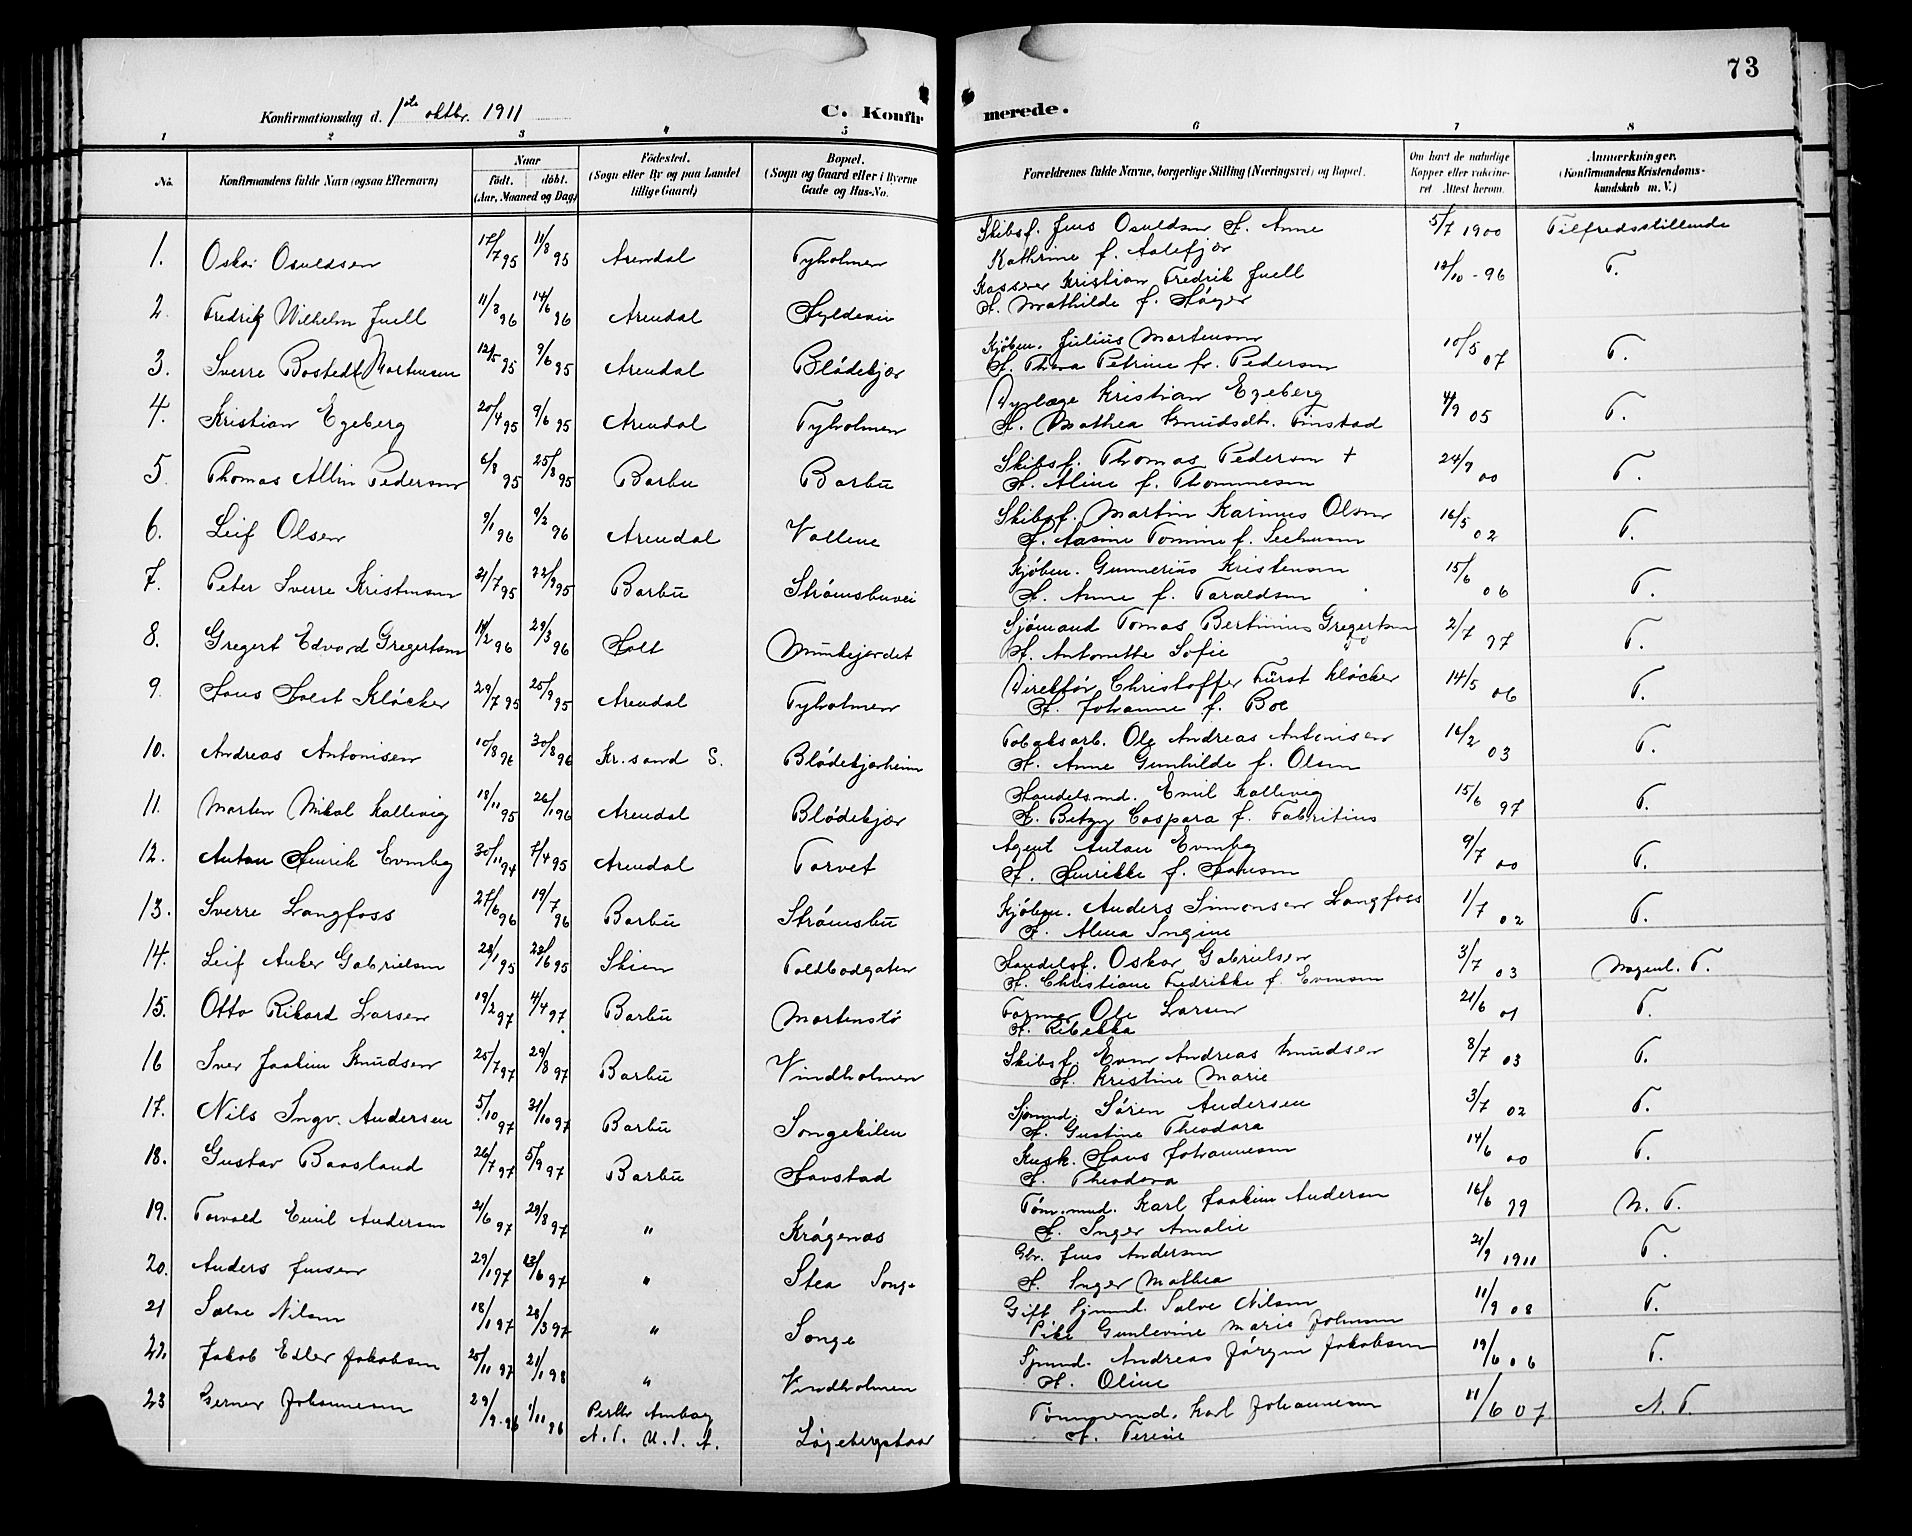 73
Konfirmationsdag d. 1ste oktbr. 1911
C. Konfirmerede.
1 2 3 4 5 6 7 8
No. Konfirmandens fulde Navn (ogsaa Efternavn) Naar født. døbt. (Aar, Maaned og Dag) Fødested. (Sogn eller By og paa Landet tillige Gaard) Bopæl. (Sogn og Gaard eller i Byerne Gade og Hus-No. Forældrenes fulde Navne, borgerlige Stilling (Næringsvei) og Bopæl. Om havt de naturlige Kopper eller vaccineret Attest herom. Anmærkninger. (Konfirmandens Kristendomskundskab m. V.)
1. Oskar Osuldsen 17/7 95 11/8 95 Arendal Tyholmen Skibsf. Jens Osuldsen H. Anne 5/7 1900 Tilfredsstillende
Kathrine f. Aalefjær
2. Fredrik Wilhelm Juell 11/3 96 14/6 96 Arendal Hyldevei Kasserer Kristian Fredrik Juell 12/10 - 96 T.
H. Mathilde f. Høyer
3. Sverre Bostedt Mortensen 12/5 95 9/6 95 Arendal Blødekjær Kjøbm. Julius Mortensen 10/5 07 T.
H. Thora Petrine f. Pedersen
4. Kristian Egeberg 20/4 95 9/6 95 Arendal Tyholmen Dyrlæge Kristian Egeberg 4/9 05 T.
H. Mathea Knudsdt. Finstad
5. Thomas Allin Pedersen 6/8 95 25/8 95 Barbu Barbu Skibsf. Thomas Pedersen + 24/7 00 T.
H. Aline f. Thommesen
6. Leif Olsen 9/1 96 9/2 96 Arendal Vollene Skibsf. Martin Karinus Olsen 16/5 02 T.
H. Aasine Tomine f.
7. Peter Sverre Kristensen 21/7 95 22/9 95 Barbu Strømsbuvei Kjøbm. Gunnerius Kristensen 15/6 06 T.
H. Anne f. Taraldsen
8. Gregert Edvard Gregertsen 14/2 96 29/3 96 Holt Munkejordet Sjømand Tomas Bertinius Gregertsen 2/7 97 T.
H. Antonette Sofie
9. Hans Holst Kløcker 29/7 95 25/9 95 Arendal Tyholmen Direktør Christoffer Fürst Kløcker 14/5 06 T.
H. Johanne f. Boe
10. Andreas Antonisen 10/8 96 30/8 96 Kr.sand S. Blødekjærheim Tobaksarb. Ole Andreas Antonisen 16/2 03 T.
H. Anne Gunhilde f. Olsen
11. Morten Mikal Kallevig 18/11 95 26/1 96 Arendal Blødekjær Handelsmd. Emil Kallevig 15/6 97 T.
H. Betzy Caspara f. Fabritius
12. Anton Henrik Evensby 30/11 94 7/4 95 Arendal Torvet Agent Anton Evensby 9/7 00 T.
H. Henrikke f. Hansen
13. Sverre Langfoss 27/6 96 19/7 96 Barbu Strømsbu Kjøbm. Anders Simonsen Langfoss 1/7 02 T.
H. Alma Ingine
14. Leif Anker Gabrielsen 28/1 95 23/6 95 Skien Toldbodgaten Handelsf. Oskar Gabrielsen 3/7 03 Megent. T.
H. Christiane Fredrikke f. Evensen
15. Otto Rikard Larsen 19/2 97 4/4 97 Barbu Mortenstø Former Ole Larsen 21/6 01 T.
H. Rebekka
16 Iver Joakim Knudsen 25/7 97 29/8 97 Barbu Vindholmen Skibsf. Even Andreas Knudsen 8/7 03 T.
H. Kristine Marie
17. Nils Ingv. Andersen 5/10 97 31/10 97 Barbu Songekilen Sjømd. Søren Andersen 3/7 02 T.
H. Gustine Theodora
18. Gustav Baasland 26/7 97 5/9 97 Barbu Havstad Kusk. Hans Johannesen 14/6 00 T.
H. Theodora
19. Torvald Emil Andersen 21/6 97 29/8 97 " Krøgenæs Tøm.md. Karl Joakim Andersen 16/6 99 M. T.
H. Inger Amalie
20. Anders Jensen 29/1 97 13/6 97 " Stea Songe Gbr. Jens Andersen 21/9 1911 T.
H. Inger Mathea
21 Salve Nilsen 18/1 97 28/3 97 " Songe Gift Sjømd. Salve Nilsen 11/9 08 T.
Pike Gunlevine Marie Johnsen
22. Jakob Edler Jakobsen 25/11 97 21/1 98 " Vindholmen Sjømd. Andreas Jørgen Jakobsen 19/6 06 T.
H. Oline
23 Gerner Johannesen 29/9 - 96 1/11 96 Perth Amboy Løgebergstoa Tømmermd. Karl Johannesen 11/6 07 N. T.
N.T. U.S.A. H. Terese